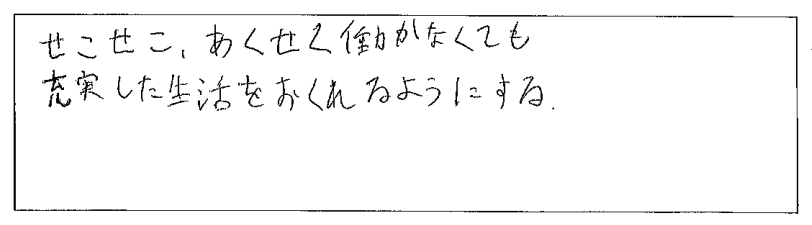 せこせこ、あくせく働かなくても
充実した生活をおくれるようにする.